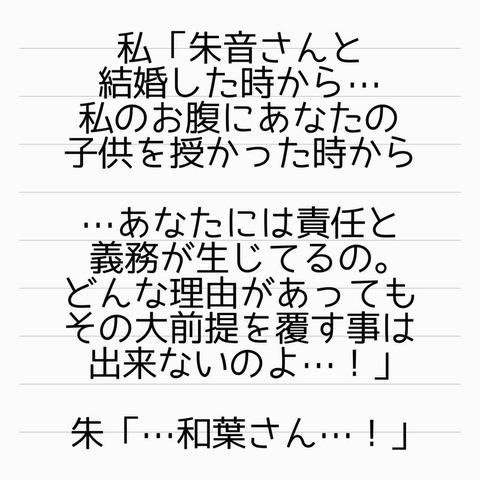 私「朱音さんと
結婚した時から…
私のお腹にあなたの
子供を授かった時から
…あなたには責任と
義務が生じてるの。
どんな理由があっても
その大前提を覆す事は
出来ないのよ…！」
朱「…和葉さん…！」